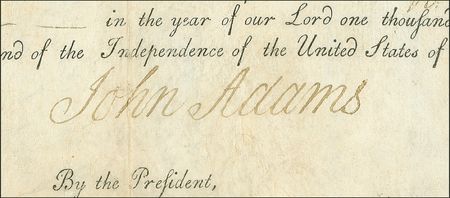 in the year of our Lord one thousand
nd of the Independence of the United States of
John Adams
By the Preſident,